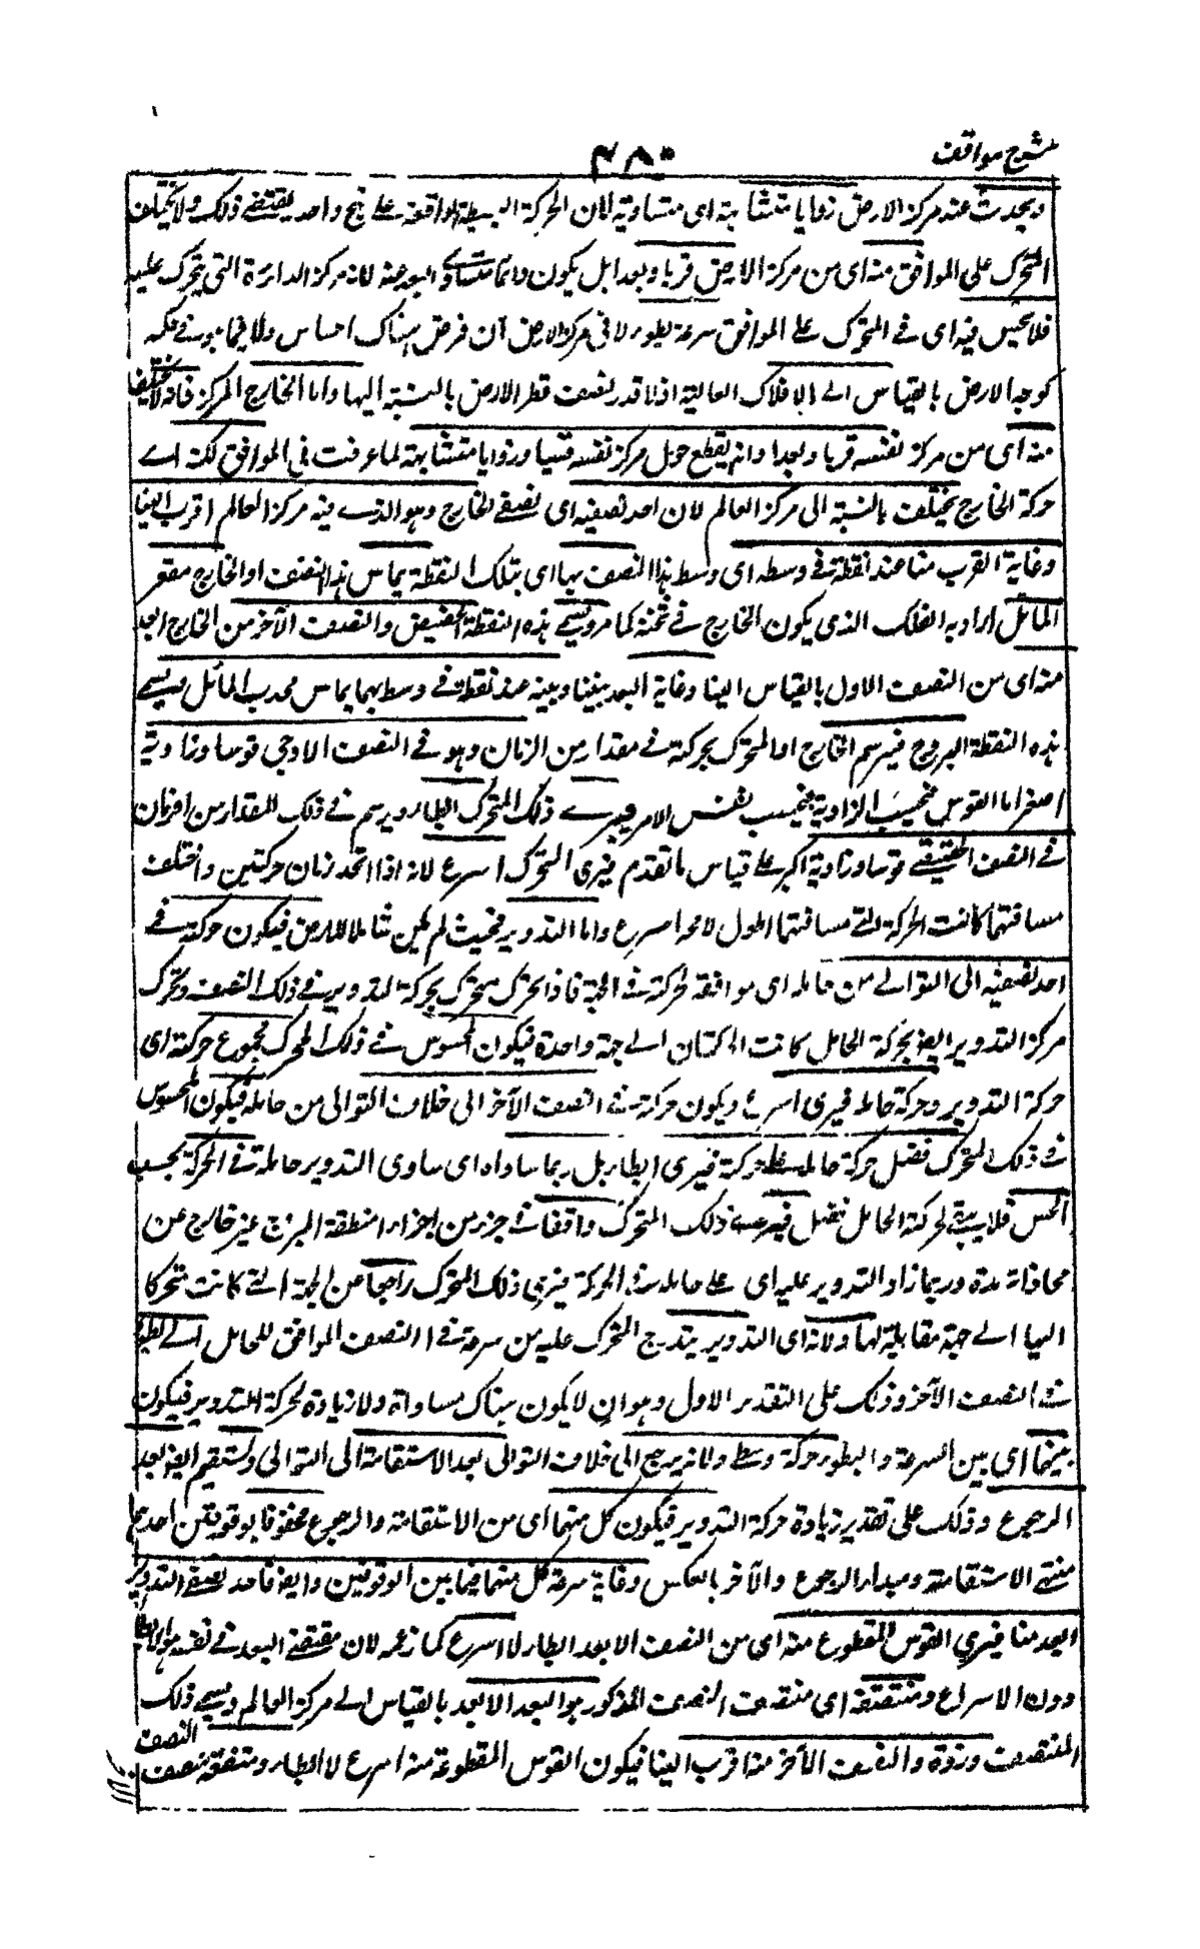 شرح مواقف
۴۸۰
ويحدث عند مركز الارض زوايا متشابهة اى متساوية لان الحركة البسيطة الواقعة على نهج واحد يقتضى ذلك ولا يختلف
المتحرك على الموافق منه اى من مركز الارض قربا وبعدا بل يكون دائما متساوى البعد عنه لانه مركز الدائرة التى يتحرك عليه
فلا يحس فيه اى فى المتحرك على الموافق سرعة وبطوء لا فى مركز الارض ان فرض هناك احساس ولا فيما هو فى حكمه
كوجه الارض بالقياس الى الافلاك العالية اذ لا قدر لنصف قطر الارض بالنسبة اليها واما الخارج المركز فانه لا يختلف
منه اى من مركز نفسه قربا وبعدا وانه يقطع حول مركز نفسه قسيا وزوايا متشابهة لما عرفت فى الموافق لكنه اى
حركة الخارج يختلف بالنسبة الى مركز العالم لان احد نصفيه اى نصفى الخارج وهو الذى فيه مركز العالم اقرب الينا
وغاية القرب منا عند نقطة فى وسطه اى وسط هذا النصف بها اى بتلك النقطة يماس هذا النصف او الخارج مقعر
المائل اراد به الفلك الذى يكون الخارج فى ثخنه كما مر ويسمى هذه النقطة الحضيض والنصف الآخر من الخارج ابعد
منه اى من النصف الاول بالقياس الينا وغاية البعد بيننا وبينه عند نقطة فى وسط بهما يماس محدب المائل ويسمى
هذه النقطة البروج فيرسم الخارج او المتحرك بحركته فى مقدار من الزمان وهو فى النصف الاوجى قوسا وزاوية
اصغر اما القوس فبحسب الزاوية فبحسب نفس الامر فيرى ذلك المتحرك ابطا ويرسم فى ذلك المقدار من الزمان
فى النصف الحضيضى قوسا وزاوية اكبر على قياس ما تقدم فيرى المتحرك اسرع لانه اذا اتحد زمان حركتين واختلف
مسافتهما كانت الحركة التى مسافتها اطول لا محة اسرع واما التدوير فحيث لم يكن شاملا للارض فيكون حركته فى
احد نصفيه الى التوالى من حامله اى موافقة لحركته فى الجهة فاذا تحرك متحرك بحركة التدوير فى ذلك النصف وتحرك
مركز التدوير ايضا بحركة الحامل كانت الحركتان الى جهة واحدة فيكون المحسوس فى ذلك المتحرك مجموع حركته اى
حركة التدوير وحركة حامله فيرى اسرع ويكون حركته فى النصف الآخر الى خلاف التوالى من حامله فيكون المحسوس
فى ذلك المتحرك فضل حركة حامله على حركته فيرى ابطا بل ربما ساواه اى ساوى التدوير حامله فى الحركة بحسب
الحس فلا يبقى لحركة الحامل فضل فيرى ذلك المتحرك واقفا فى جزء من اجزاء منطقة البروج غير خارج عن
محاذاته مدة وربما زاد التدوير عليه اى على حامله فى الحركة فيرى ذلك المتحرك راجعا عن الجهة التى كانت متحركا
اليها الى جهة مقابلة لها ولانه اى التدوير يتدرج المتحرك عليه من سرعة فى النصف الموافق للحامل الى بطوء
فى النصف الآخر وذلك على التقدير الاول وهو ان لا يكون هناك مساواة ولا زيادة لحركة التدوير فيكون
بينهما اى بين السرعة والبطوء حركة وسطى ولانه يرجع الى خلاف التوالى بعد الاستقامة الى التوالى ويستقيم ايضا بعد
الرجوع وذلك على تقدير زيادة حركة التدوير فيكون كل منهما اى من الاستقامة والرجوع محفوفا بوقوفين احدهما
منتهى الاستقامة ومبدا الرجوع والآخر بالعكس وغاية سرعة كل منهما فيما بين الوقوفين وايضا فاحد نصفى التدوير
ابعد منا فيرى القوس المقطوع منه اى من النصف الابعد ابطا لا اسرع كما زعمه لان مقتضى البعد فى نفسه هو الابطا
دون الاسراع ومنتصفه اى منتصف النصف المذكور هو البعد الابعد بالقياس الى مركز العالم ويسمى ذلك
المنتصف ذروة والنصف الآخر منه اقرب الينا فيكون القوس المقطوعة منه اسرع لا ابطا ومنتصفه منتصف
النصف